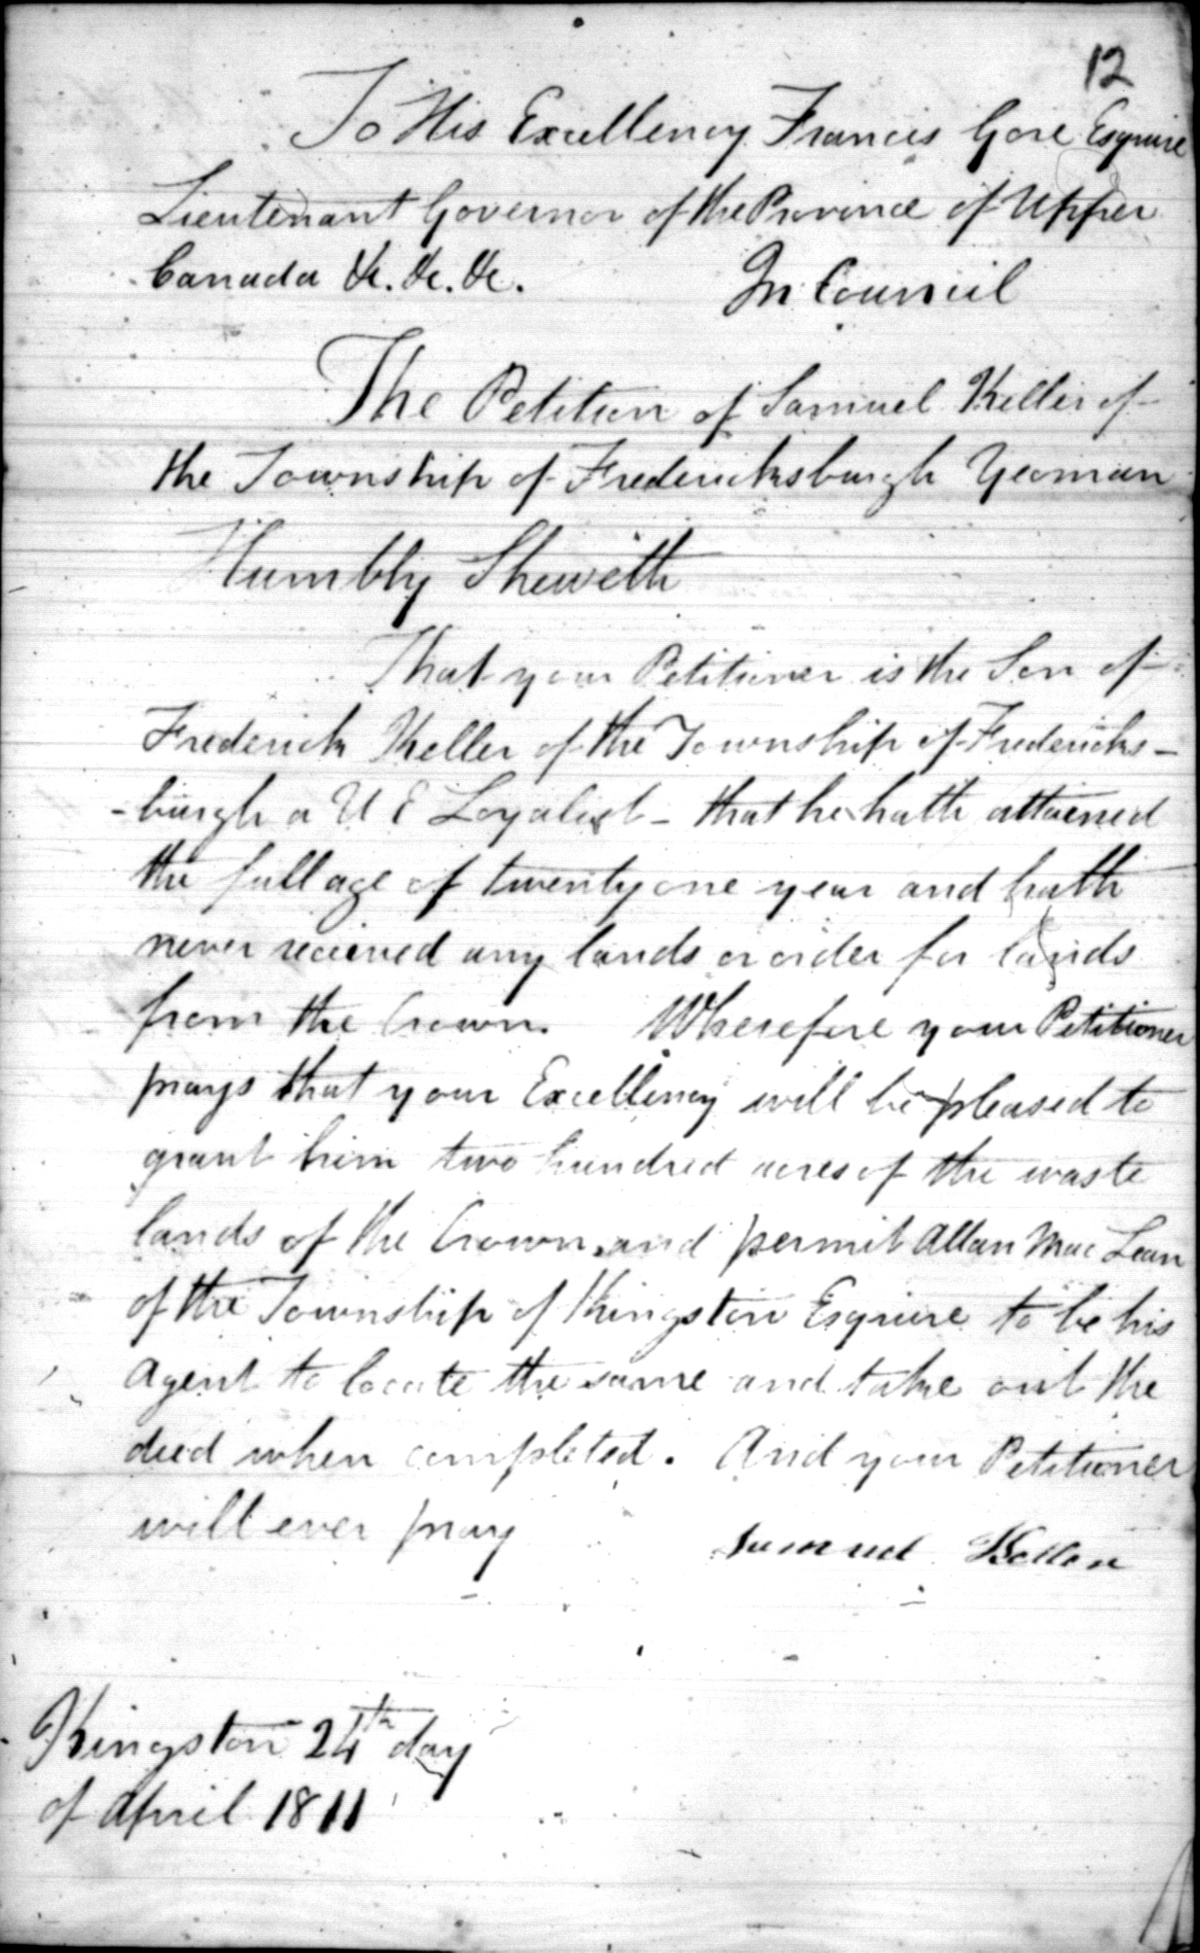 12
To His Excellency Francis Gore Esquire
Lieutenant Governor of the Province of Upper
Canada &c. &c. &c. In Council
The Petition of Samuel Keller of
the Township of Fredericksburgh Yeoman
Humbly Sheweth
That your Petitioner is the Son of
Frederick Keller of the Township of Fredericks-
-burgh a U E Loyalist - that he hath attained
the full age of twenty one year and hath
never recieved any lands or order for lands
from the Crown. Wherefore your Petitioner
prays that your Excellency will be pleased to
grant him two hundred acres of the waste
lands of the Crown, and permit Allan Mac Lean
of the Township of Kingston Esquire to be his
Agent to locate the same and take out the
deed when completed. And your Petitioner
will ever pray Samuel Keller
Kingston 24th day
of April 1811